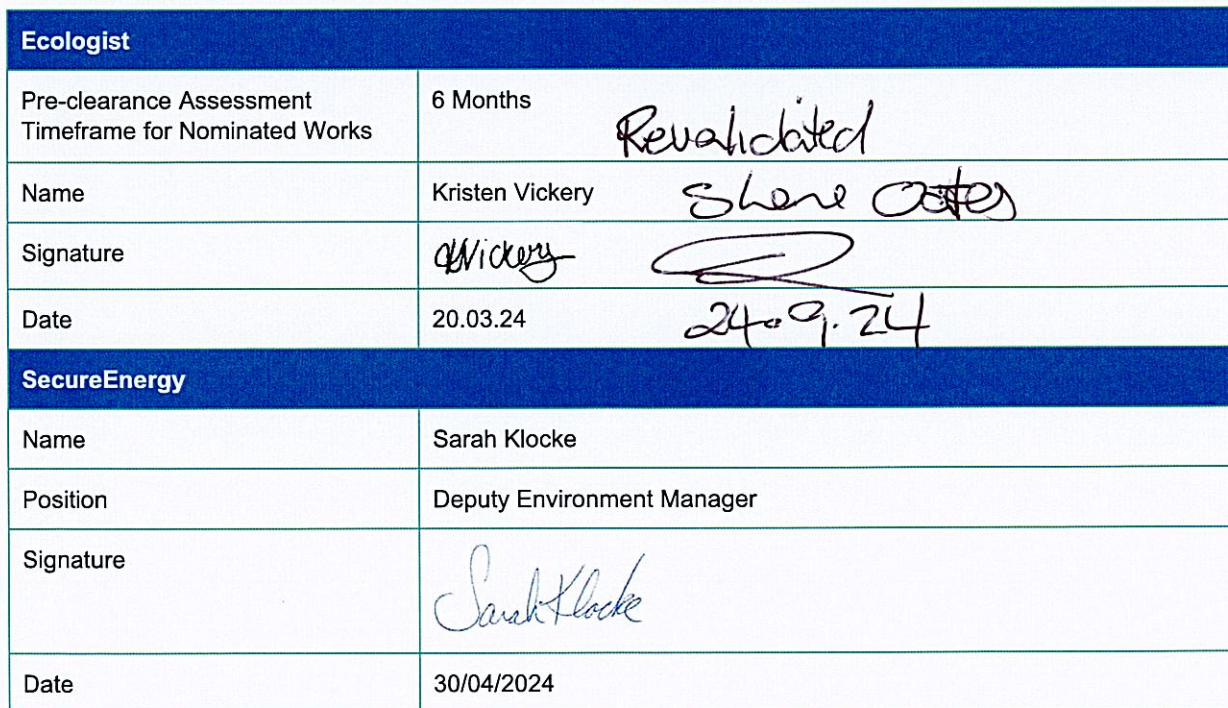 Ecologist
Pre-clearance Assessment
Timeframe for Nominated Works
6 Months
Revalidated
Name
Kristen Vickery
Shane Oates
Signature
KVickery
Date
20.03.24
24.9.24
SecureEnergy
Name
Sarah Klocke
Position
Deputy Environment Manager
Signature
Sarah Klocke
Date
30/04/2024